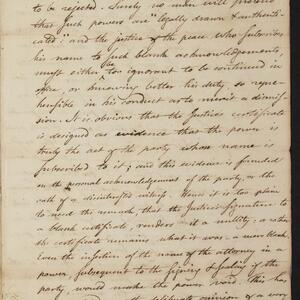 to be rejected. Surely no man will pretend
that such powers are "legally drawn & authenti-
cated;" and the justice of the peace who subscribes
his name to such blank acknowledgements
must either be too ignorant to be continued in
office, or knowing better his duty, so repre-
hensible in his conduct as to merit a dismis-
sion. It is obvious that the Justices certificate
is designed as evidence that the power is
truly the act of the party whose name is
subscribed to it; and this evidence is founded
on the personal acknowledgement of the party, or the
oath of a disinterested witness. Hence it is too plain
to need the remark, that the Justice's signature to
a blank certificate, renders it a nullity; or rather
the certificate remains what it was, a mere blank.
Even the insertion of the name of the attorney in a
power, subsequent to the signing & sealing of the
party, would make the power void. This has
deliberate opinion of a